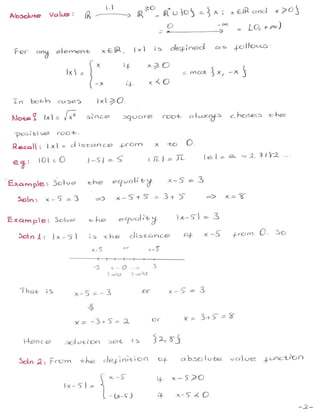 Absolute Value: ℝ —|·|→ ℝ^{≥0} = ℝ⁺∪{0} = {x : x∈ℝ and x≥0}
= [0,+∞)
For any element x∈ℝ, |x| is defined as follows:
|x| = { x if x≥0
-x if x<0 = max{x,-x}
In both cases |x|≥0.
Note: |x| = √x² since square root always choses the
positive root.
Recall: |x| = distance from x to 0
eg: |0| = 0 |-5| = 5 |π| = π |e| = e ≈ 2.7182...
Example: Solve the equality x-5 = 3
Soln: x-5 = 3 ⇒ x-5+5 = 3+5 ⇒ x=8
Example: Solve the equality |x-5| = 3
Soln 1: |x-5| is the distance of x-5 from 0. So
x-5 or x-5
-3 0 3
3 unit 3 unit
That is x-5 = -3 or x-5 = 3
x = -3+5 = 2 or x = 3+5 = 8
Hence solution set is {2,8}
Soln 2: From the definition of absolute value function
|x-5| = { x-5 if x-5≥0
-(x-5) if x-5<0
-2-